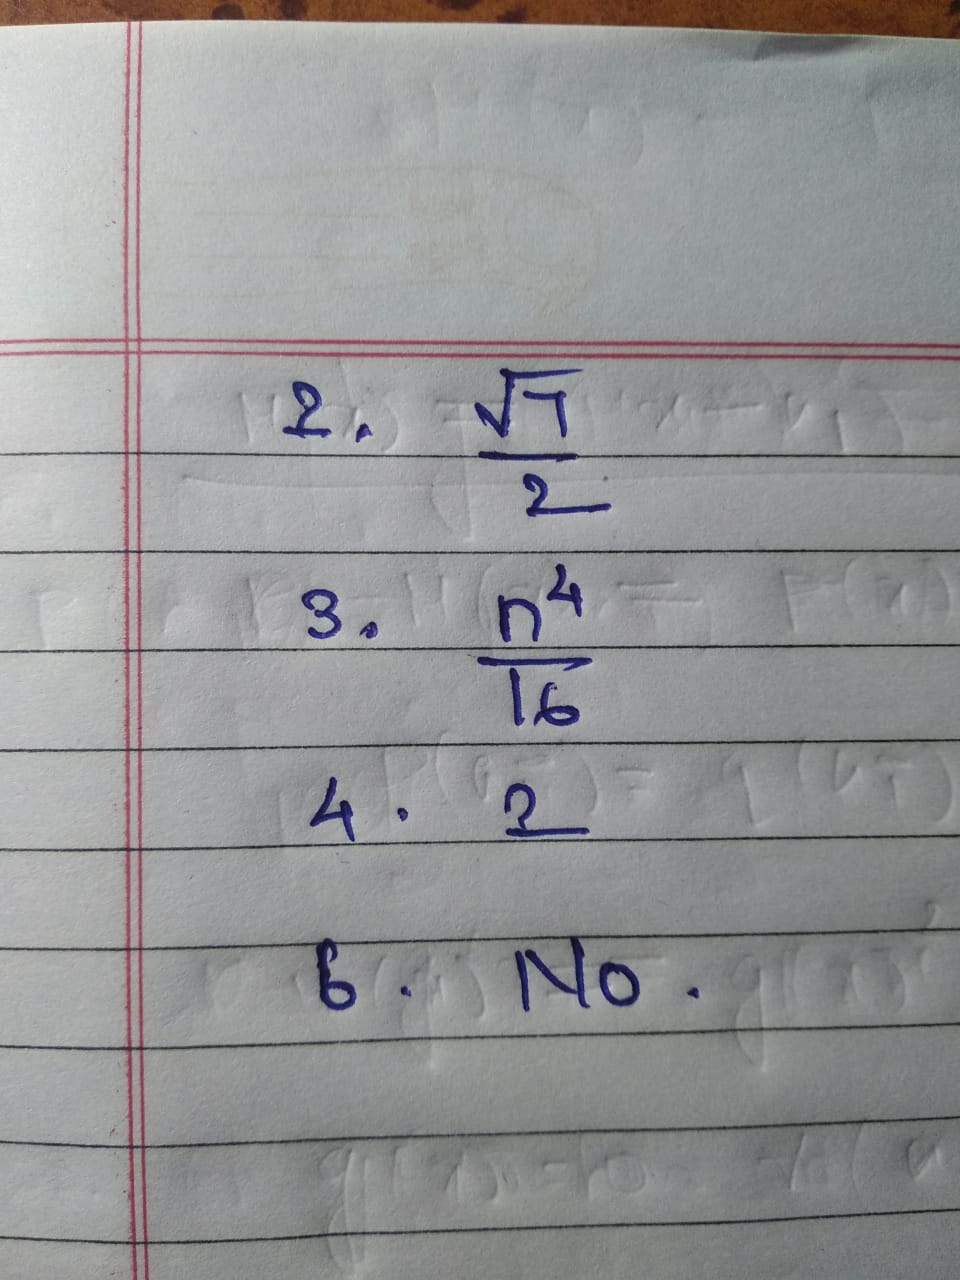 2. √7/2
3. n⁴/16
4. 2
6. No.